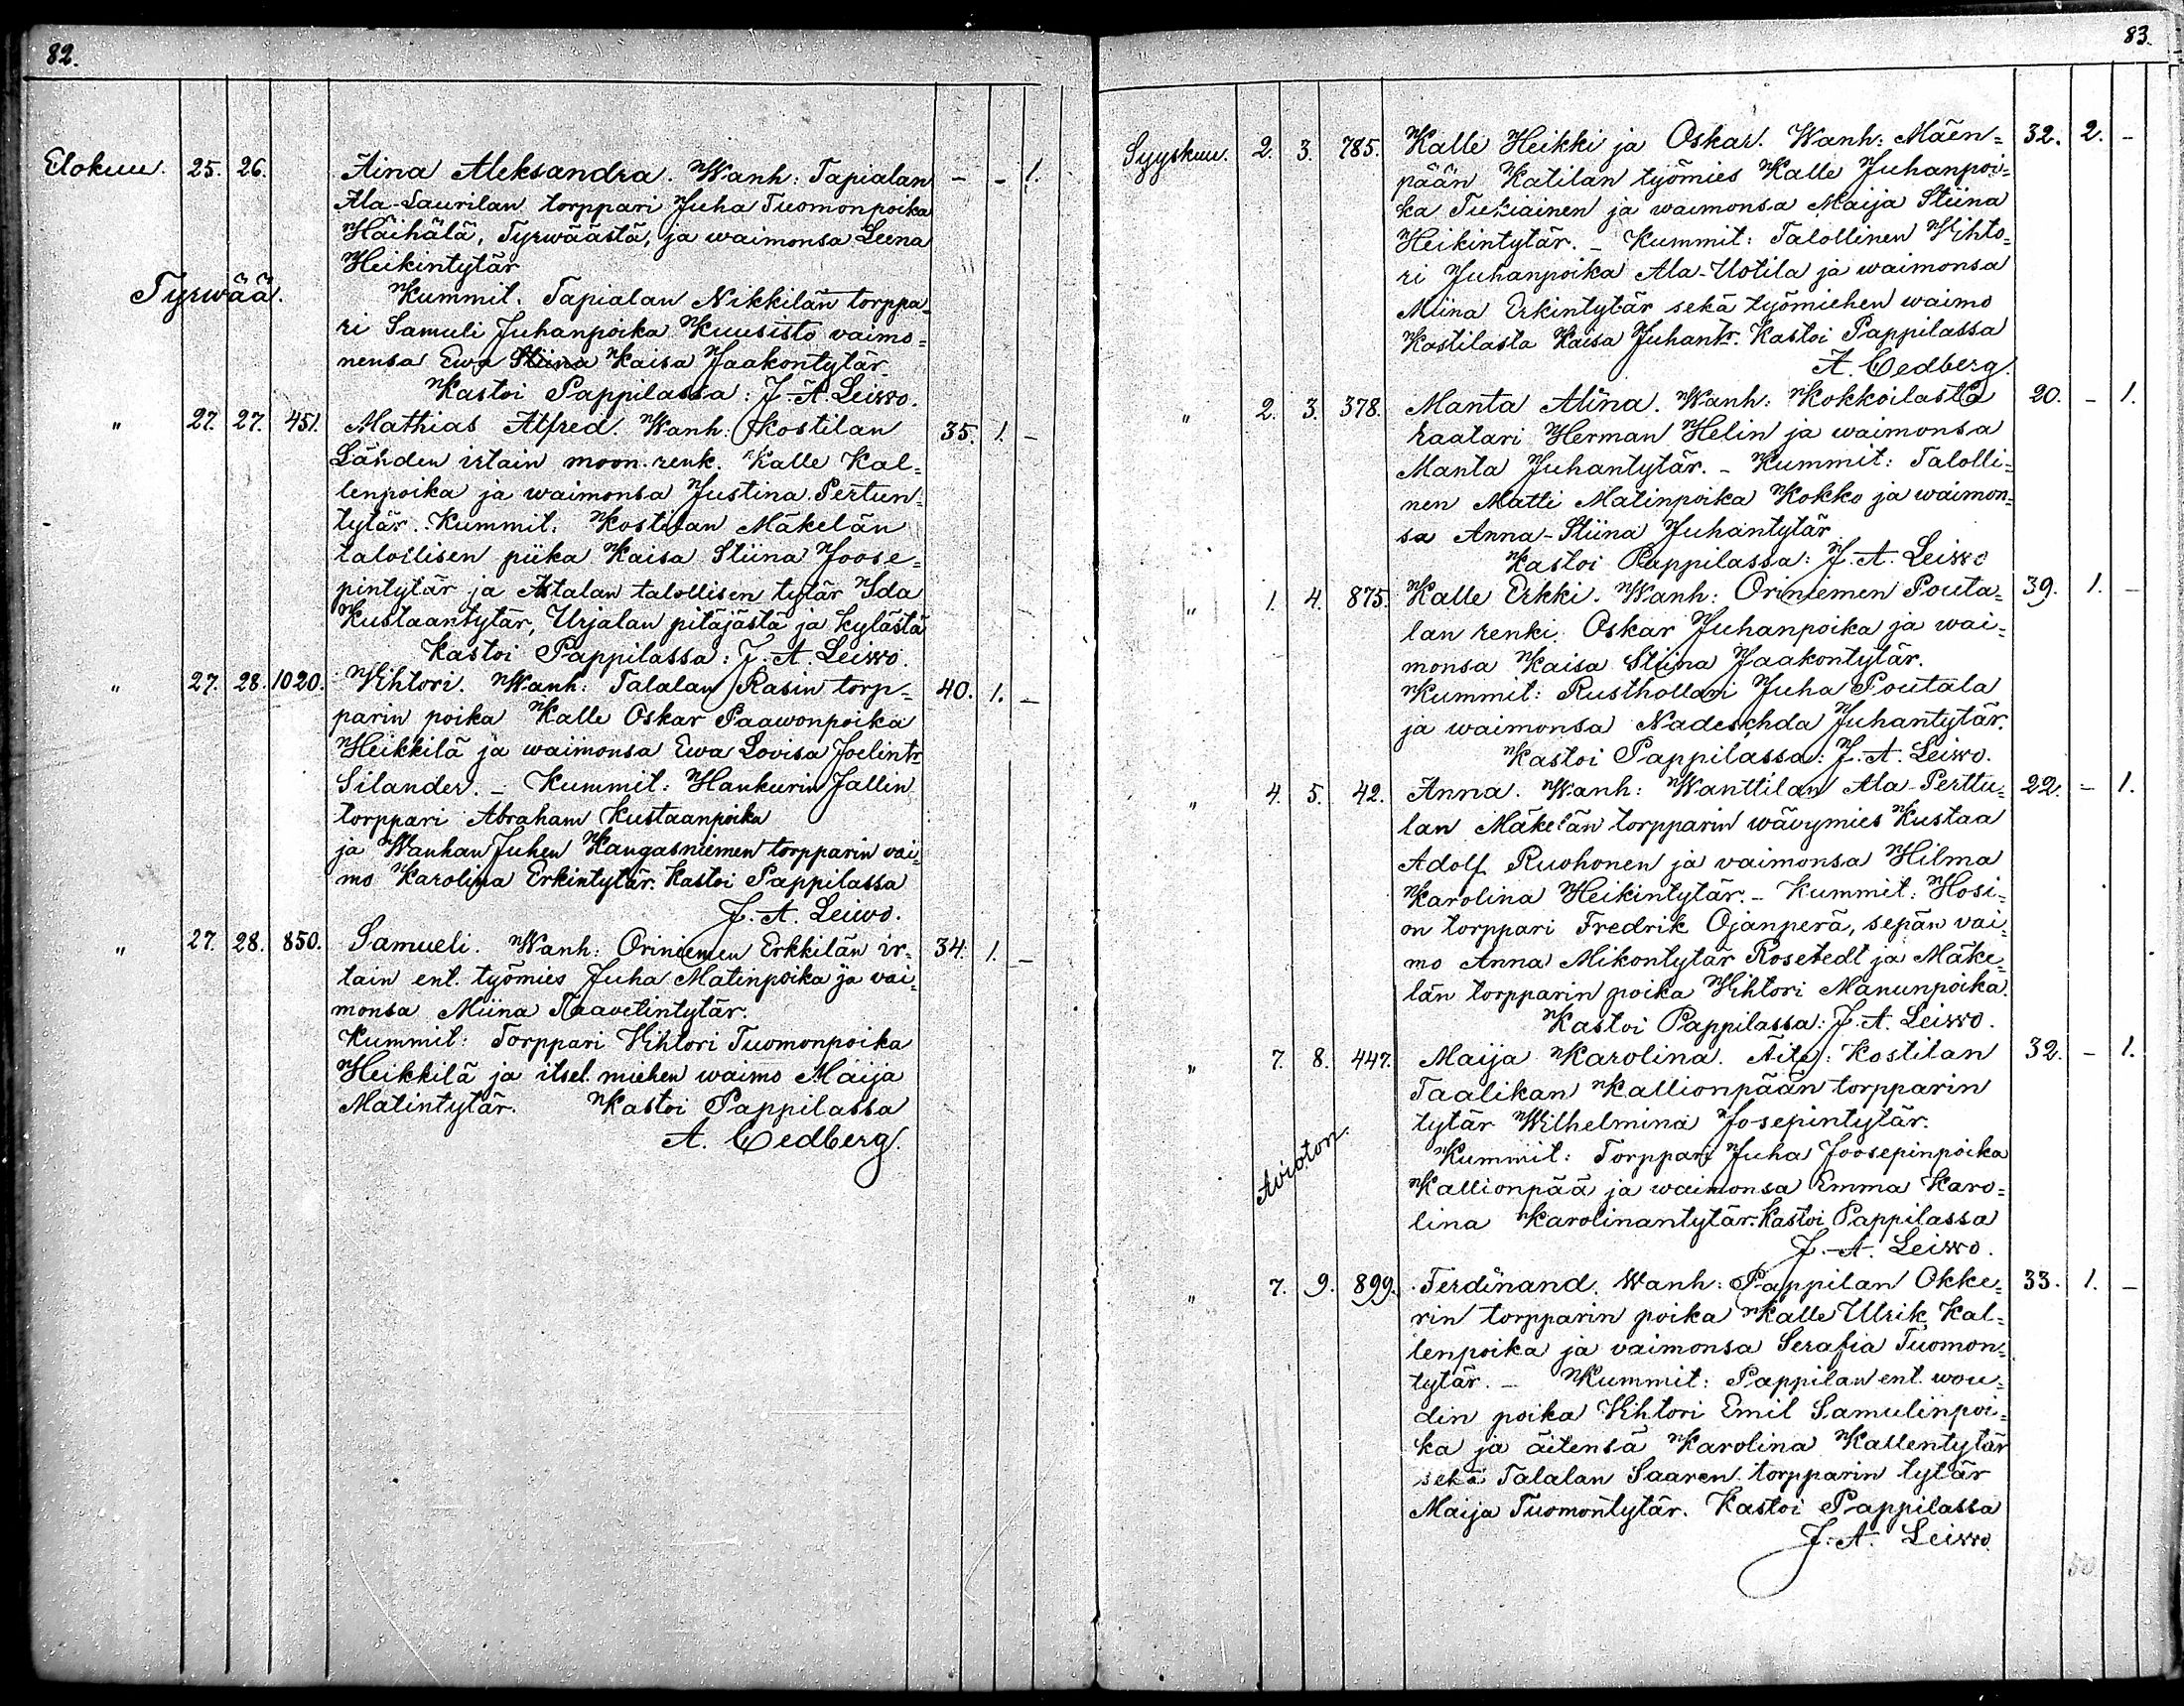 82.
Elokuu. 25. 26. Aina Aleksandra. Wanh: Tapialan - - 1.
Ala-Laurilan torppari Juha Tuomonpoika
Häihälä, Tyrwäästä, ja waimonsa Leena
Heikintytär
Tyrwää.
Kummit: Tapialan Nikkilän torppa=
ri Samuli Juhanpoika Kuusisto vaimo=
nensa Ewa Stiina Kaisa Jaakontytär.
Kastoi Pappilassa: J. A. Leiwo.
" 27. 27. 451. Mathias Alfred. Wanh: Kostilan 35. 1. -
Lähden irtain moon. renk. Kalle Kal=
lenpoika ja waimonsa Justina Pertun=
tytär. Kummit: Kostilan Mäkelän
talollisen piika Kaisa Stiina Joose=
pintytär ja Astalan talollisen tytär Ida
Kustaantytär, Urjalan pitäjästä ja kylästä
Kastoi Pappilassa: J. A. Leiwo.
" 27. 28. 1020. Vihtori. Wanh: Talalan Rasin torp= 40. 1. -
parin poika Kalle Oskar Paawonpoika
Heikkilä ja waimonsa Ewa Lovisa Joelintr
Silander. - Kummit: Hankurin Jallin
torppari Abraham Kustaanpoika
ja Wanhan Juhen Kangasniemen torpparin vai=
mo Karolina Erkintytär. Kastoi Pappilassa
J. A. Leiwo.
" 27. 28. 850. Samueli. Wanh: Oriniemen Erkkilän ir= 34. 1. -
tain ent. työmies Juha Matinpoika ja vai=
monsa Miina Taavetintytär.
Kummit: Torppari Vihtori Tuomonpoika
Heikkilä ja itsel. miehen waimo Maija
Matintytär. Kastoi Pappilassa
A. Cedberg.
83.
Syyskuu. 2. 3. 785. Kalle Heikki ja Oskar. Wanh: Mäen= 32. 2. -
pään Katilan työmies Kalle Juhanpoi=
ka Tukiainen ja waimonsa Maija Stiina
Heikintytär. - Kummit: Talollinen Vihto=
ri Juhanpoika Ala-Uotila ja waimonsa
Miina Erkintytär sekä työmiehen waimo
Kostilasta Kaisa Juhantr. Kastoi Pappilassa
A. Cedberg.
" 2. 3. 378. Manta Alina. Wanh: Kokkoilasta 20. - 1.
raatari Herman Helin ja waimonsa
Manta Juhantytär. - Kummit: Talolli=
nen Matti Matinpoika Kokko ja waimon=
sa Anna-Stiina Juhantytär
Kastoi Pappilassa: J. A. Leiwo
" 1. 4. 875. Kalle Erkki. Wanh: Oriniemen Pouta= 39. 1. -
lan renki Oskar Juhanpoika ja wai=
monsa Kaisa Stiina Jaakontytär.
Kummit: Rusthollari Juha Poutala
ja waimonsa Nadeschda Juhantytär.
Kastoi Pappilassa: J. A. Leiwo.
" 4. 5. 42. Anna. Wanh: Wanttilan Ala-Perttu= 22. - 1.
lan Mäkelän torpparin wävymies Kustaa
Adolf Ruohonen ja vaimonsa Hilma
Karolina Heikintytär. - Kummit: Hosi=
on torppari Fredrik Ojanperä, sepän vai=
mo Anna Mikontytär Rosetedt ja Mäke=
län torpparin poika Vihtori Manunpoika.
Kastoi Pappilassa: J. A. Leiwo.
" 7. 8. 447. Maija Karolina. Äite: Kostilan 32. - 1.
Taalikan Kallionpään torpparin
tytär Wilhelmina Josepintytär.
Avioton.
Kummit: Torppari Juha Joosepinpoika
Kallionpää ja waimonsa Emma Karo=
lina Karolinantytär. Kastoi Pappilassa
J. A. Leiwo.
" 7. 9. 899. Ferdinand. Wanh: Pappilan Okke= 33. 1. -
rin torpparin poika Kalle Ulrik Kal=
lenpoika ja vaimonsa Serafia Tuomon=
tytär. - Kummit: Pappilan ent. wou=
din poika Vihtori Emil Samulinpoi=
ka ja äitensä Karolina Kallentytär
sekä Talalan Saaren torpparin tytär
Maija Tuomontytär. Kastoi Pappilassa
J. A. Leiwo.
50